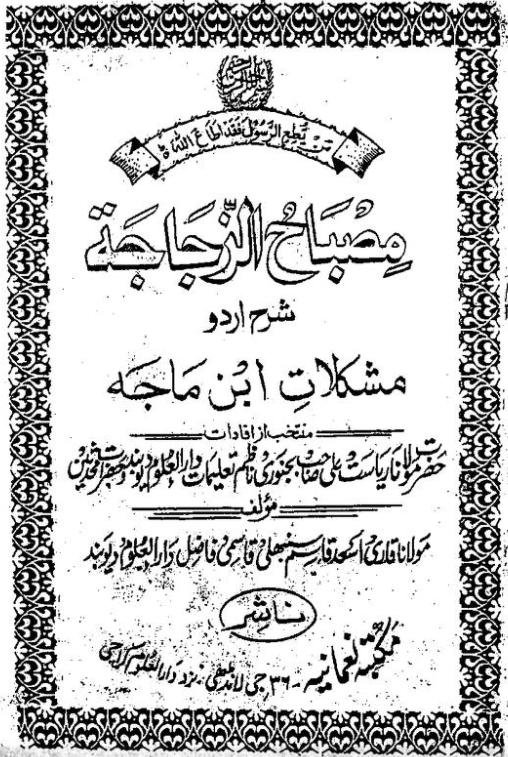 مَنْ يُّطِعِ الرَّسُوْلَ فَقَدْ اَطَاعَ اللّٰهَ
مِصْبَاحُ الزُّجَاجَة
شرح اردو
مشکلاتِ ابْن مَاجَه
منتخب از افادات
حضرت مولانا ریاست علی صاحب بجنوری ناظم تعلیمات دار العلوم دیوبند وحضرات محدثین
مؤلف
مولانا قاری اسعد قاسم سنبھلی قاسمی فاضل دار العلوم دیوبند
ناشر
مکتبہ نعمانیہ - ۳۶ جی لانڈھی - نزد دار العلوم کراچی